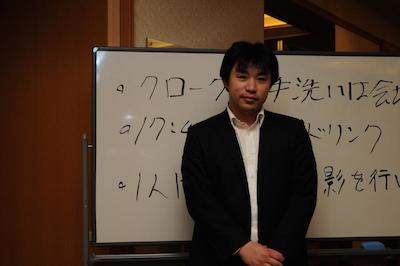 ・クローク 手洗いは会
・17:
ドリンク
・1人1
影を行い